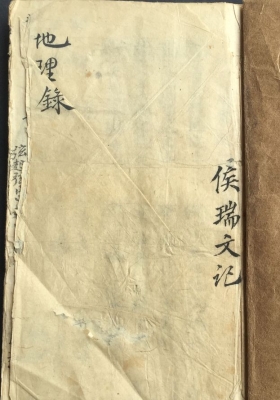 侯瑞文記
地理錄